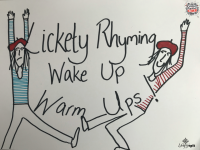 Lickety Rhyming
Wake Up
Warm Ups